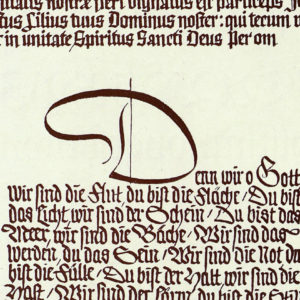 nostrae fieri dignatus est particeps
Filius tuus Dominus noster: qui tecum v
in unitate Spiritus Sancti Deus Per om
Denn wir o Gott
Wir sind die Flut, du bist die Fläche/ Du bist
das Licht, wir sind der Schein/ Du bist das
Meer, wir sind die Bäche/ Wir sind das
werden, du das Sein/ Wir sind die Not du
bist die Fülle/ Du bist der Halt wir sind die
Hast/ Wir sind der Sturm, du bist die